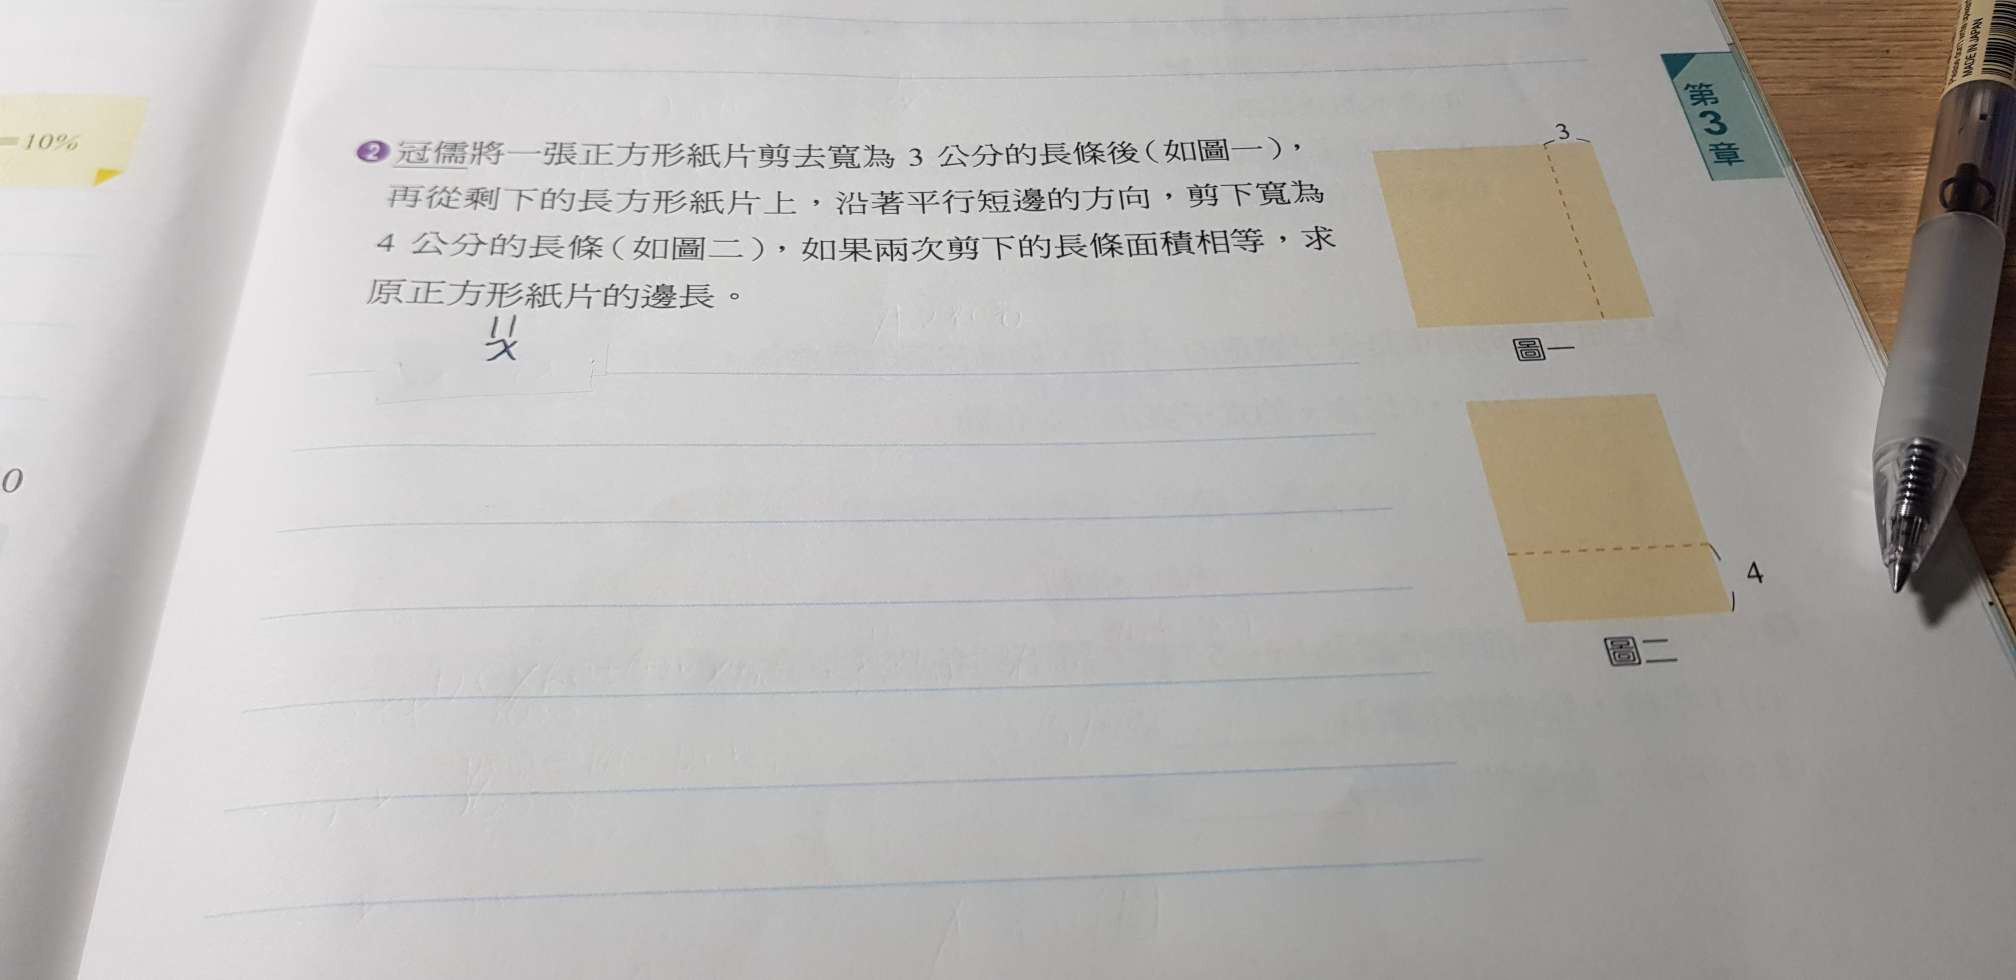 =10%
0
❷ 冠儒將一張正方形紙片剪去寬為 3 公分的長條後(如圖一),
再從剩下的長方形紙片上,沿著平行短邊的方向,剪下寬為
4 公分的長條(如圖二),如果兩次剪下的長條面積相等,求
原正方形紙片的邊長。
x
3
圖一
4
圖二
第
3
章
MADE IN JAPAN